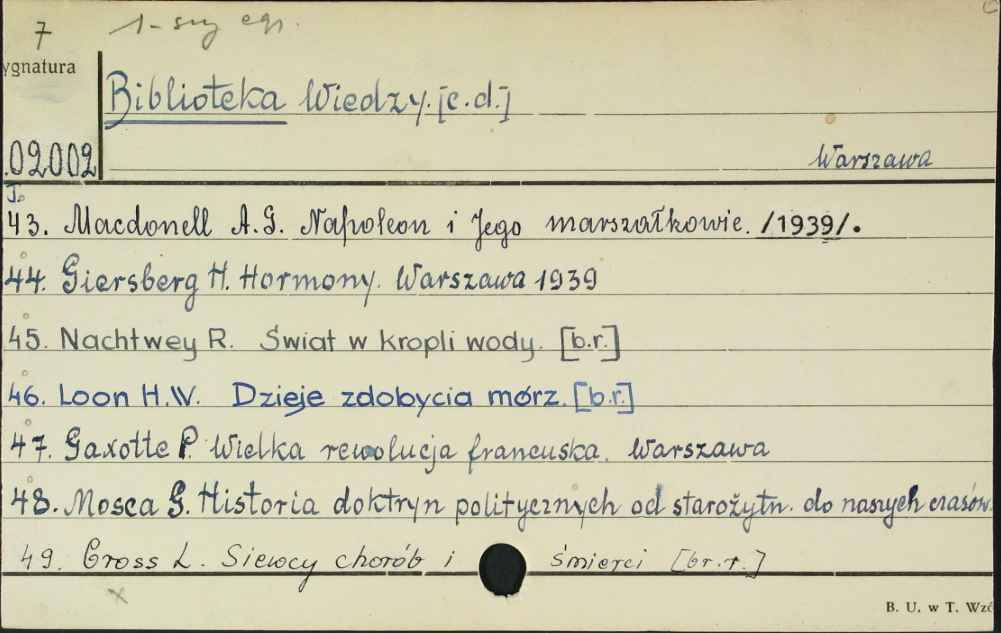 7 1-szy egz.
ygnatura
Biblioteka Wiedzy. [c.d.]
.02002 Warszawa
43. Macdonell A.G. Napoleon i Jego marszałkowie. /1939/.
44. Giersberg H. Hormony. Warszawa 1939
45. Nachtwey R. Świat w kropli wody. [b.r.]
46. Loon H.W. Dzieje zdobycia mórz. [b.r.]
47. Gaxotte P. Wielka rewolucja francuska. Warszawa
48. Mosca G. Historia doktryn politycznych od starożytn. do naszych czasów.
49. Gross L. Siewcy chorób i śmierci [br.r.]
B. U. w T. Wzó